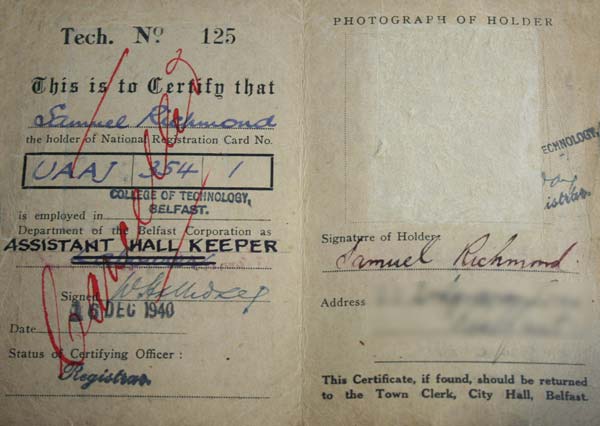 Tech. Nº 125
This is to Certify that
Samuel Richmond
the holder of National Registration Card No.
UAAJ 354 1
COLLEGE OF TECHNOLOGY,
BELFAST.
is employed in
Department of the Belfast Corporation as
ASSISTANT HALL KEEPER
Signed
16 DEC 1940
Date
Status of Certifying Officer :
Registrar.
Cancelled
PHOTOGRAPH OF HOLDER
ECHNOLOGY,
istrar.
Signature of Holder
Samuel Richmond.
Address
This Certificate, if found, should be returned
to the Town Clerk, City Hall, Belfast.